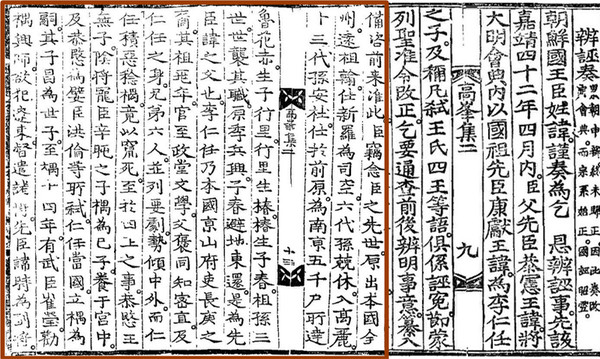 辨誣奏
朝鮮國王臣姓諱謹奏爲乞 恩辨誣事先該
嘉靖四十二年四月內臣父先臣恭憲王諱將
大明會典內以國祖先臣康獻王諱爲李仁任
之子及稱凡弑王氏四王等語俱係誣寃節蒙
列聖准令改正乞要通查前後辨明事意纂入
高峯集二 九
備咨前來准此臣竊念臣之先世原出本國全
州遠祖翰仕新羅爲司空六代孫兢休入高麗
十三代孫安社仕於前原爲南京五千戶所達
高峯集二
魯花赤生子行里行里生椿椿生子春祖孫三
世世襲其職原季兵興子春避地東還是爲先
臣諱之父也李仁任乃本國京山府吏長庚之
裔其祖兆年官至政堂文學父褒同知密直及
仁任之身兄弟六人並列要劇勢傾中外而仁
任積惡稔禍竟以竄死至於四上之事恭愍王
無子陰將寵臣辛旽之子禑爲己子養于宮中
及恭愍爲嬖臣洪倫等所弑仁任當國立禑爲
嗣其子昌爲世子至禑十四年有武臣崔瑩勸
禑興師欲犯遼東督遣諸將先臣諱時爲副將